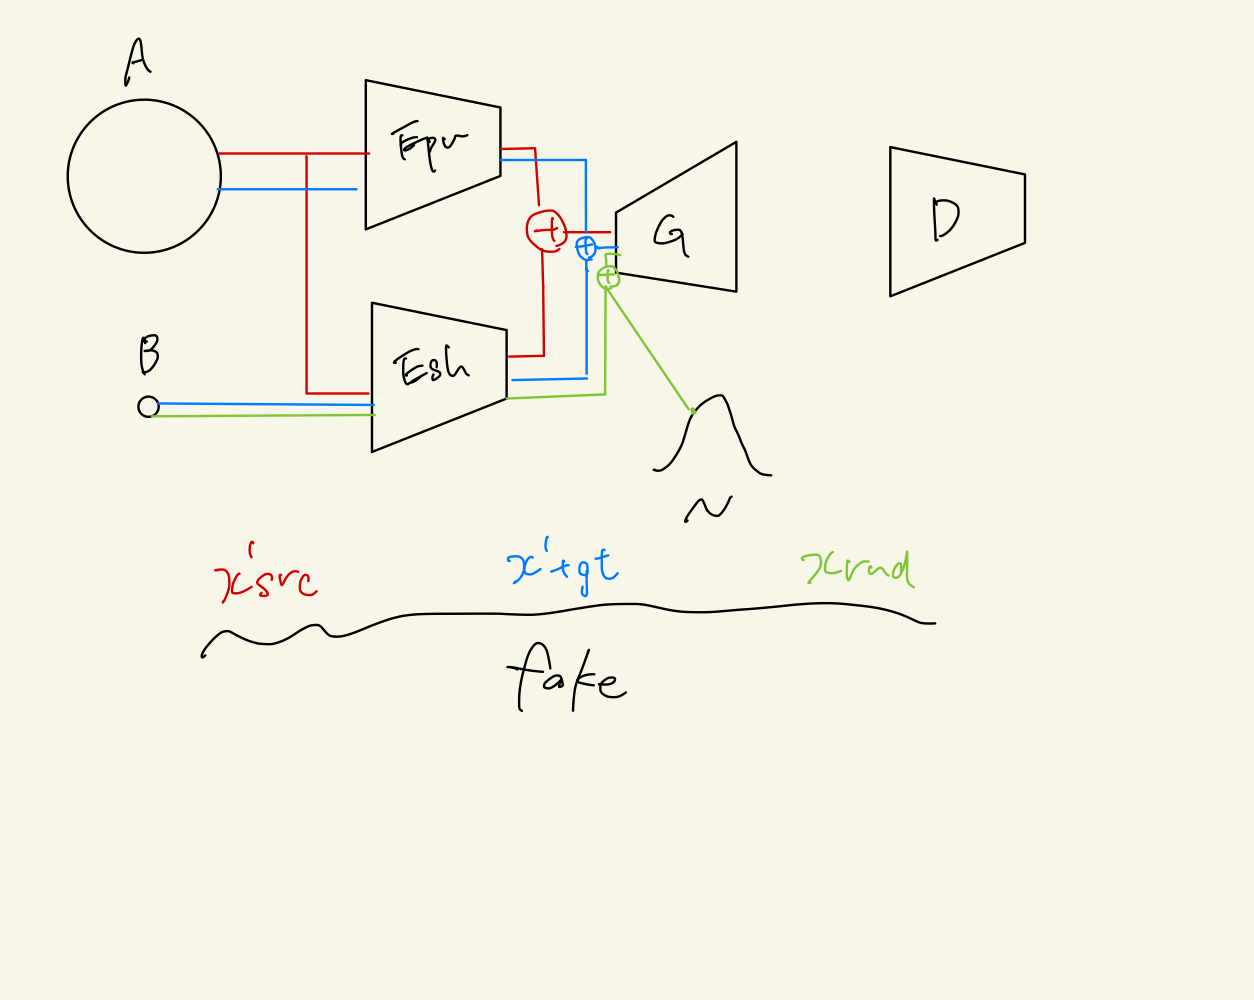 A
Epv
G
D
B
Esh
N
x'src x'tgt xrnd
fake